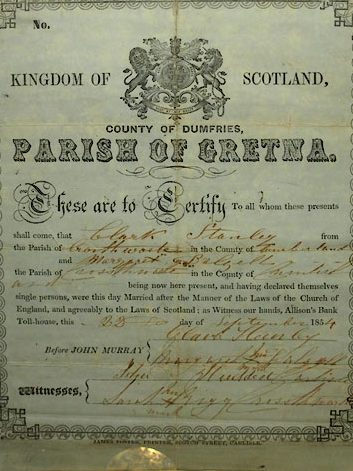 No.
KINGDOM OF SCOTLAND,
COUNTY OF DUMFRIES,
PARISH OF GRETNA.
These are to Certify To all whom these presents
shall come, that Clark Stanley from
the Parish of in the County of Cumberland
and Margaret
the Parish of in the County of
being now here present, and having declared themselves
single persons, were this day Married after the Manner of the Laws of the Church of
England, and agreeably to the Laws of Scotland; as Witness our Hands, Allison's Bank
Toll-house, this day of September 1854
Clark Stanley
Before JOHN MURRAY
Witnesses,
Sarah
mark
JAMES STEEL, PRINTER, SCOTCH STREET, CARLISLE.